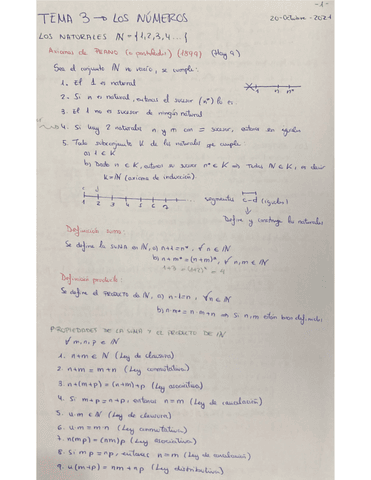 -1-
TEMA 3 → LOS NÚMEROS
20-Octubre-2021
LOS NATURALES ℕ = {1,2,3,4...}
Axiomas de PEANO (o postulados) (1899) (Hay 4)
Sea el conjunto ℕ no vacío, se cumple:
1. El 1 es natural
2. Si n es natural, entonces el sucesor (n*) lo es.
3. El 1 no es sucesor de ningún natural
1 n n*
4. Si hay 2 naturales n y m con = sucesor, entonces son iguales
5. Todo subconjunto K de los naturales que cumple
a) 1 ∈ K
b) Dado n ∈ K, entonces su sucesor n* ∈ K
K=ℕ (axioma de inducción).
1 2 3 4 5 6
segmentos c-d (iguales)
Define y construye los naturales
Definición suma:
Se define la SUMA en ℕ, a) n+1=n*, ∀ n ∈ ℕ
b) n+m* = (n+m)*, ∀ n,m ∈ ℕ
Definición producto:
Se define el PRODUCTO de ℕ, a) n·1=n, ∀n ∈ ℕ
b) n·m* = n·m+n si n,m están bien definidos
PROPIEDADES DE LA SUMA Y EL PRODUCTO DE ℕ
∀ m,n,p ∈ ℕ
1. n+m ∈ ℕ (Ley de clausura)
2. n+m = m+n (Ley conmutativa)
3. n+(m+p) = (n+m)+p (Ley asociativa)
4. Si m+p = n+p, entonces n=m (Ley de cancelación)
5. n·m ∈ ℕ (Ley de clausura)
6. n·m = m·n (Ley conmutativa)
7. n(mp) = (nm)p (Ley asociativa)
8. Si mp = np, entonces n=m (Ley de cancelación)
9. n(m+p) = nm + np (Ley distributiva)